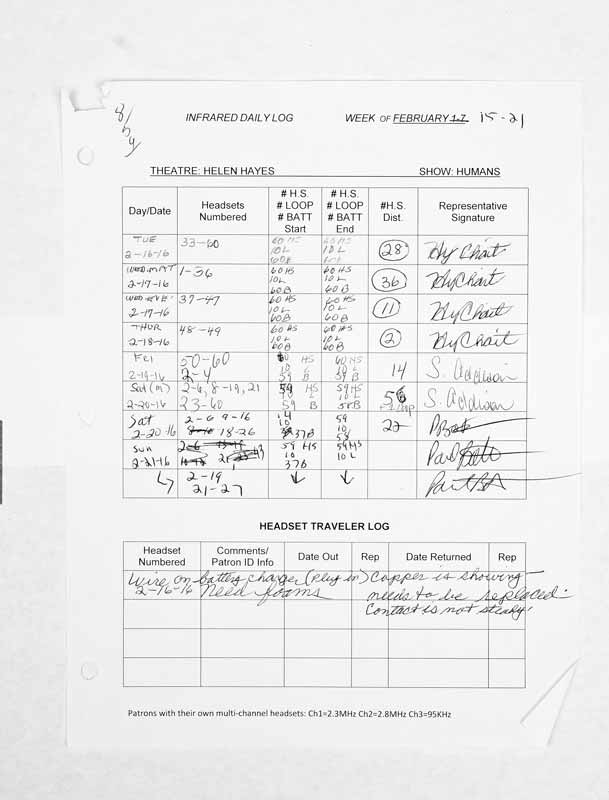 INFRARED DAILY LOG WEEK OF FEBRUARY 15-21
THEATRE: HELEN HAYES SHOW: HUMANS
Day/Date Headsets Numbered # H.S. # LOOP # BATT Start # H.S. # LOOP # BATT End #H.S. Dist. Representative Signature
TUE 2-16-16 33-60 60 HS 10L 60B 60 HS 10L 28 Hy Chait
WED MAT 2-17-16 1-36 60 HS 10L 60B 60 HS 10L 60B 36 Hy Chait
WED EVE 2-17-16 37-47 60 HS 10L 60B 60 HS 10L 60B 11 Hy Chait
THUR 2-18-16 48-49 60 HS 10L 60B 60 HS 10L 60B 2 Hy Chait
Fri 2-19-16 50-60 2-4 HS 10 L 59 B 60 HS 10 L 59 B 14 S. Addison
Sat (m) 2-20-16 2-6, 8-19, 21 23-60 59 HS L 59 B 59 HS 10 L 58 B S. Addison
Sat 2-20-16 2-6 9-16 18-26 10 37B 59 10 58
Sun 2-21-16 59 HS 10 37B 59 HS 10 L
2-19
21-27
HEADSET TRAVELER LOG
Headset Numbered Comments/ Patron ID Info Date Out Rep Date Returned Rep
Wire on battery charger (plug in) Copper is showing
2-16-16 Need foams needs to be replaced.
Contact is not steady.
Patrons with their own multi-channel headsets: Ch1=2.3MHz Ch2=2.8MHz Ch3=95KHz